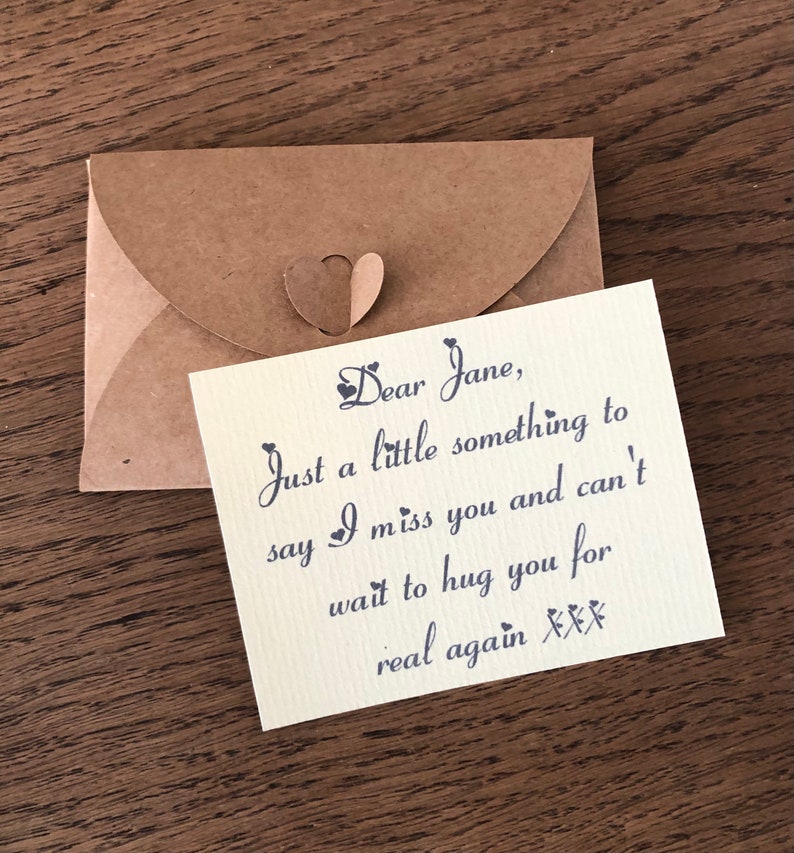 Dear Jane,
Just a little something to
say I miss you and can't
wait to hug you for
real again XXX